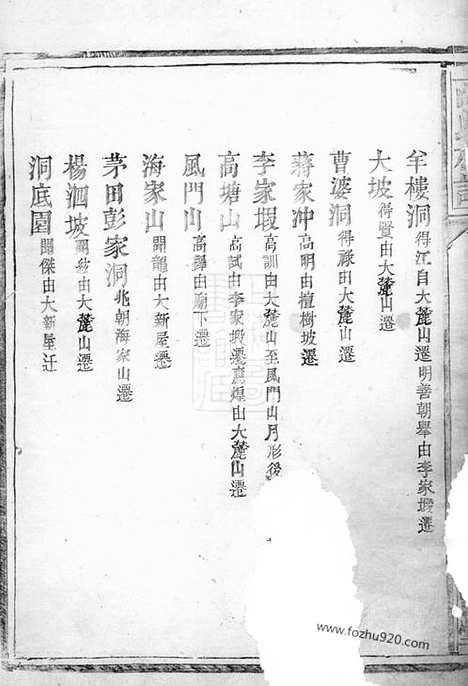 牟樓洞 得江自大麓山遷明善朝舉由李家塅遷
大坡 得賢由大麓山遷
曹婆洞 得祿由大麓山遷
蔣家冲 高明由檀樹坡遷
李家塅 高訓由大麓山至風門山月形後
高塘山 高試由李家塅遷 由大麓山遷
風門山 高 由廟下遷
海家山 開龍由大新屋遷
茅田彭家洞 兆朝海家山遷
楊泗坡 明 由大麓山遷
洞底園 開傑由大新屋迁
www.fozhu920.com